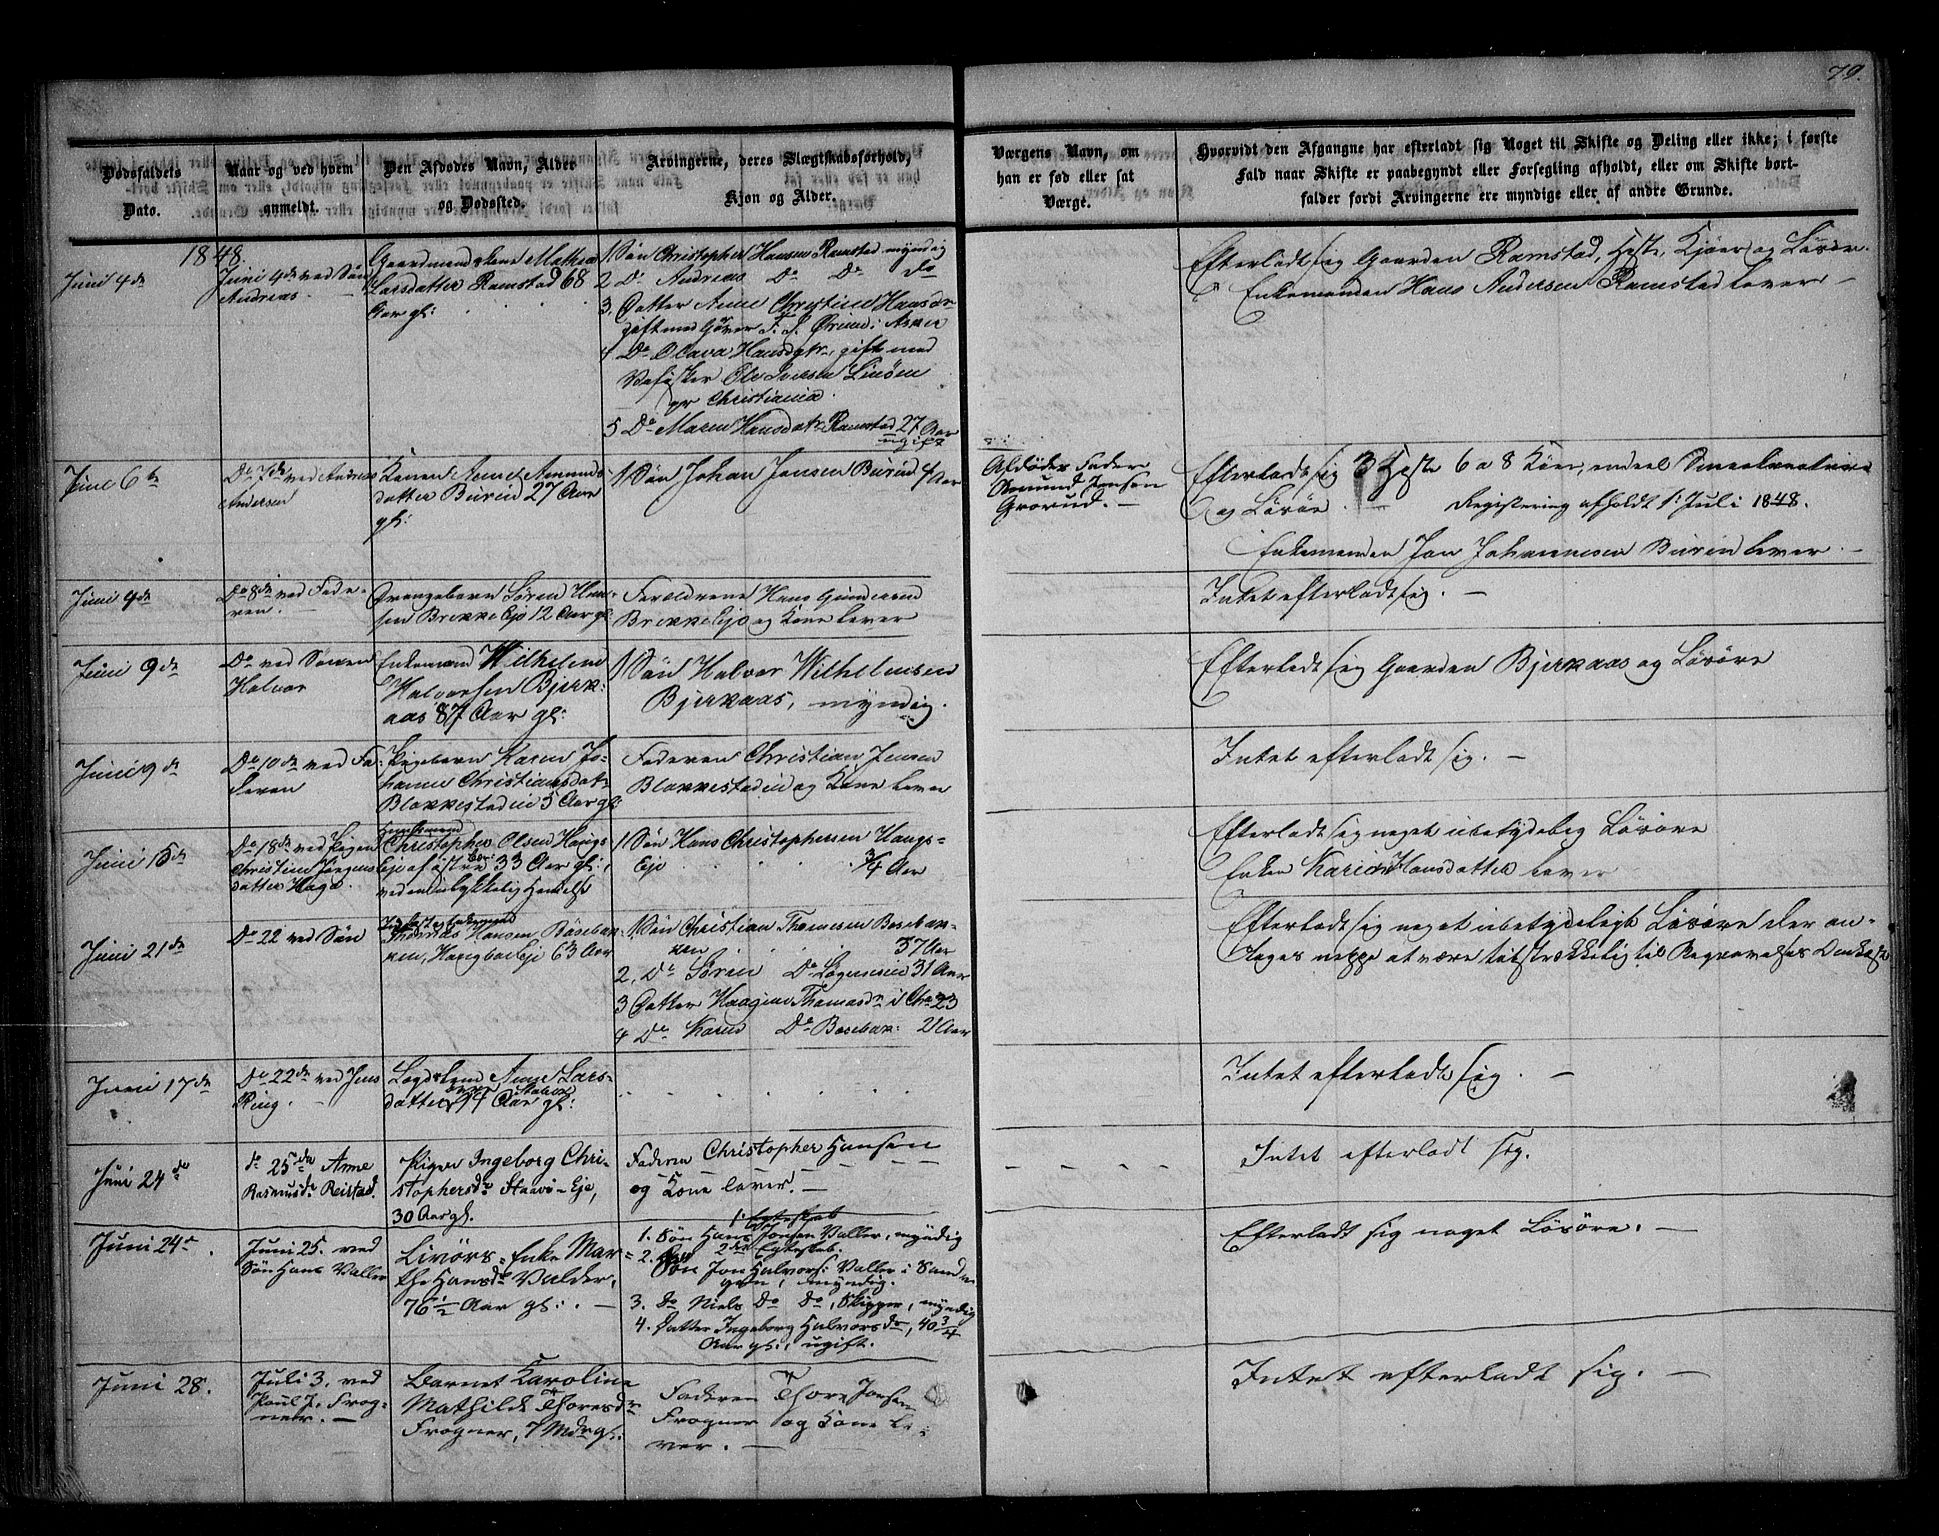 79.
Dødsfaldets
Dato.
Naar og ved hvem
anmeldt.
Den Afdødes Navn, Alder
og Dødssted.
Arvingerne, deres Slægtskabsforhold,
Kjøn og Alder.
Værgens Navn, om
han er fød eller sat
Værge.
Hvorvidt den Afgangne har efterladt sig Noget til Skifte og Deling eller ikke; i første
Fald naar Skifte er paabegyndt eller Forsegling afholdt, eller om Skifte bort-
falder fordi Arvingerne ere myndige eller af andre Grunde.
1848.
Juni 4de
Juni 4de ved Søn
Andreas.
Gaardmands Kone Mathea
Larsdatter Ramstad 68
Aar gl:
1 Søn Christopher Hansen Ramstad myndig
2 Do Andreas Do Do do
3. Datter Anne Christine Hansdr
gift med i Asker
4 Do Olava Hansdatr, gift med
Ole Iversen
Christiania.
5 Do Maren Hansdatr Ramstad 27 Aar
ugift
Efterladt sig Gaarden Ramstad, Heste, Kjøer og Løsøre.
Enkemanden Hans Andersen Ramstad lever —
Juni 6te
Do 7de ved Andreas
Andersen
Konen Anne Amunds
datter Burin 27 Aar
gl:
1 Søn Johan Jonsen Burin 4 Aar
Afdødes Fader
Amund Jonsen
Grorud. —
Efterladt sig 3 Heste 6 a 8 Køer, endeel Smaakreature
og Løsøre. Registrering afholdt 1 Juli 1848.
Enkemanden Jon Johannesen Burin lever. —
Juni 4de
Do 8de ved Fade-
ren. —
Drengebarn Søren Han-
sen Brekke Eje 12 Aar gl.
Forældrene Hans Gundersen
Brekke Eje og Kone lever
Intet efterladt sig. —
Juni 9de
Do ved Sønnen
Halvor
Enkemand Wilhelm
Halvorsen Bjerk-
aas 87 Aar gl:
1 Søn Halvor Wilhelmsen
Bjerkaas, myndig.
Efterladt sig Gaarden Bjerkaas og Løsøre
Juni 9de
Do 10de ved Fa-
deren
Pigebarn Karen Jo-
hanne Christiansdatr
Blakkestadeie 5 Aar gl:
Faderen Christian Jensen
Blakkestadeie og Kone lever
Intet efterladt sig. —
Juni 15de
Do 18de ved Pigen
Christine Jørgens
datter Haga.
Huusmand
Christopher Olsen Haugs
Eje 33 Aar gl:
ved en ulykkelig Hændelse
1 Søn Hans Christophersen Haugs-
Eje 3/4 Aar
Efterladt sig noget ubetydelig Løsøre
Enken Karen Hansdatter lever
Juni 21de
Do 22 ved Søn
Thomas Hansen Bøsebak-
ken, 63 Aar
1. Søn Christian Thomesen Bøsebak-
ken 37 Aar
2, Do Søren Do 31 Aar
3 Datter Haagine Thomasdr i Chra 23
4 Do Karen Do Bøsebak: 21 Aar
Efterladt sig noget ubetydeligt Løsøre der an-
tages neppe at være tilstrækkelig til Begravelses Omkost:
Juni 17de
Do 22de ved Jens
Ring. —
Lægdslem Anne Lars-
datter Aar gl:
Intet efterladt sig. —
Juni 24de
do 25de Anne
Rasmusdr Reistad.
Pigen Ingeborg Chri-
stophersdr Staavi-Eje,
30 Aar gl.
Faderen Christopher Hansen
og Kone lever. —
Intet efterladt sig.
Juni 24de.
Juni 25. ved
Søn Hans Valler
Livørs-Enke Mar-
the Hansdr Valler,
76 1/2 Aar gl:. —
1. Egteskab
1. Søn Hans Jonsen Valler, myndig
2det Egteskab.
2. Søn Jon Halvors: Valler i
myndig.
3. Do Niels Do Do, Skipper, myndig
4. Datter Ingeborg Halvorsdr, 40 3/4
Aar gl:, ugift.
Efterladt sig noget Løsøre. —
Juni 28.
Juli 3. ved
Poul J. Frog-
ner. —
Barnet Karoline
Mathilde Thoresdr
Frogner, 7 Mdr gl:.
Faderen Thore Jonsen
Frogner og Kone le-
ver. —
Intet efterladt sig. —